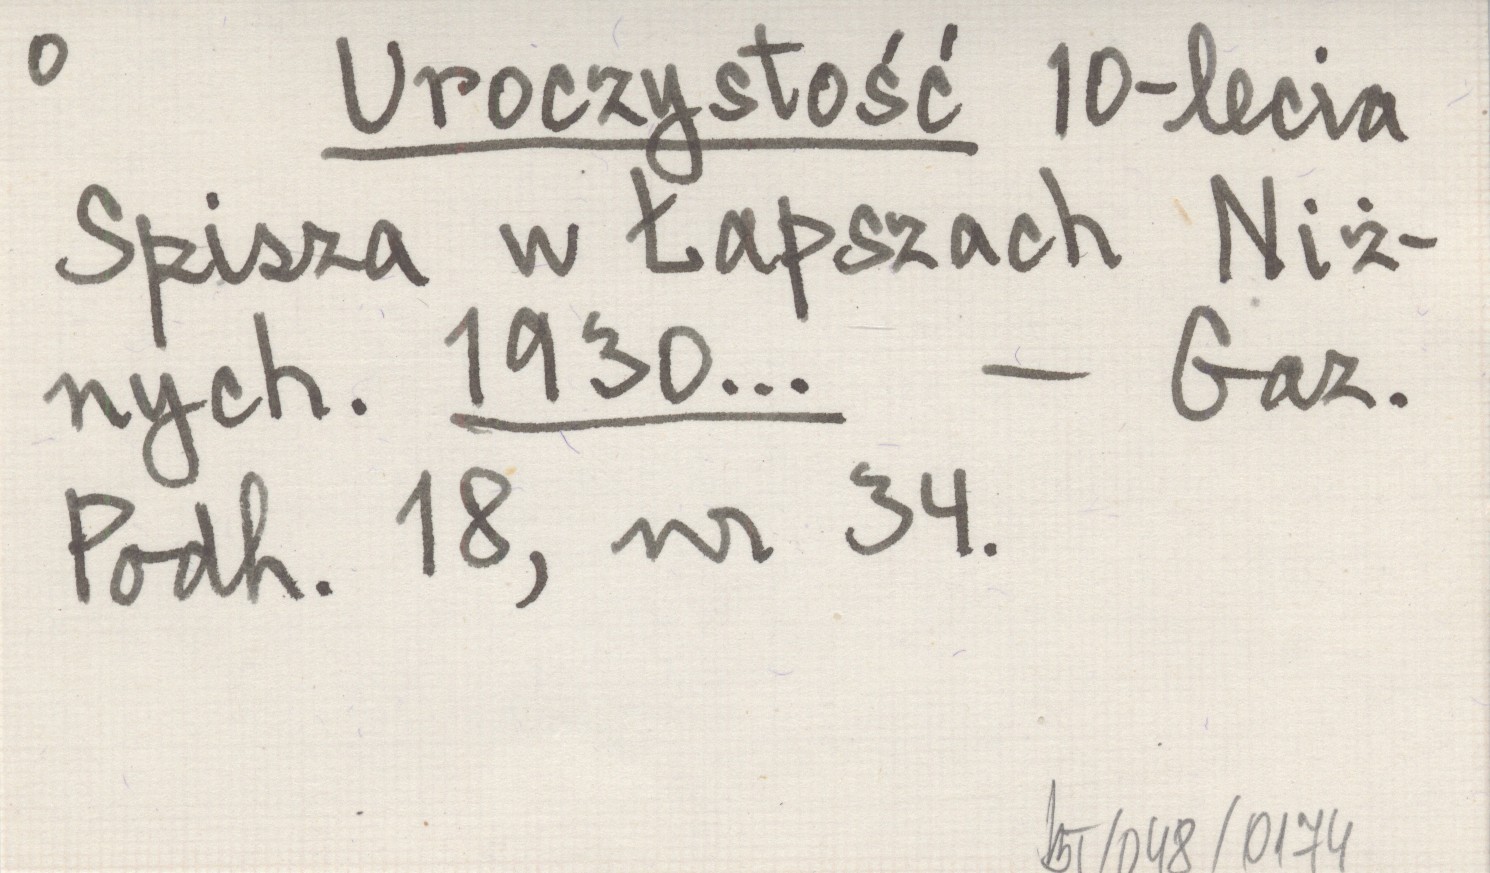 o Uroczystość 10-lecia
Spisza w Łapszach Niż-
nych. 1930... — Gaz.
Podh. 18, nr 34.
/048/0174